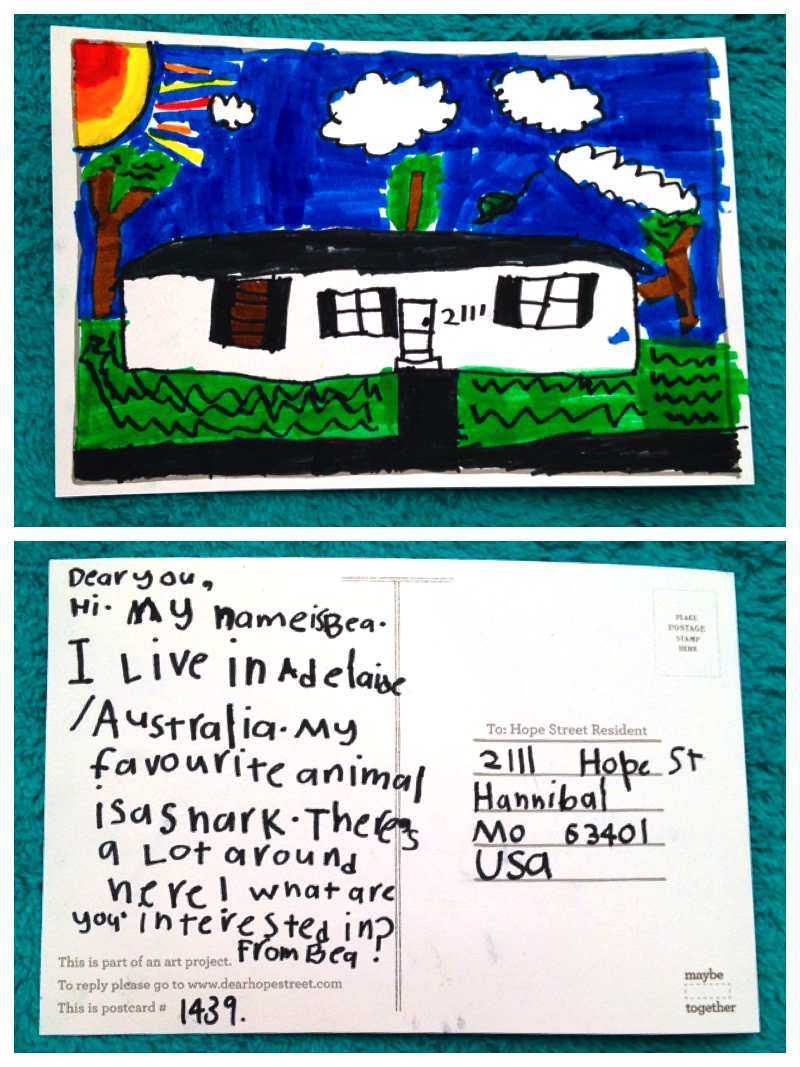 2111
Dear you,
Hi. My name is Bea.
I Live in Adelaide
/Australia. My
favourite animal
is a shark. There's
a Lot around
here! what are
you interested in?
From Bea!
This is part of an art project.
To reply please go to www.dearhopestreet.com
This is postcard # 1439.
PLACE
POSTAGE
STAMP
HERE
To: Hope Street Resident
2111 Hope St
Hannibal
Mo 63401
USA
maybe
together